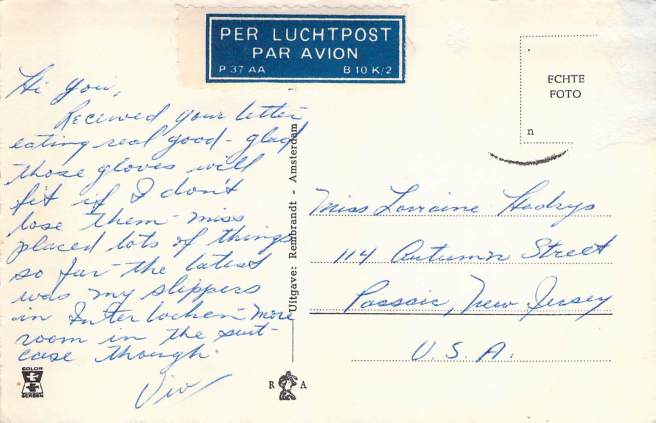 PER LUCHTPOST
PAR AVION
P 37 AA B 10 K/2
ECHTE
FOTO
n
Hi you,
Received your letter
eating real good - glad
those gloves will
fit if I don't
lose them - miss
placed lots of things
so far - the latest
was my slippers
in Interlochen - More
room in the suit-
case though.
Viv
Uitgave: Rembrandt - Amsterdam
Miss Lorraine Hadrys
114 Autumn Street
Passaic, New Jersey
U.S.A.
COLOR
SCREEN
R A